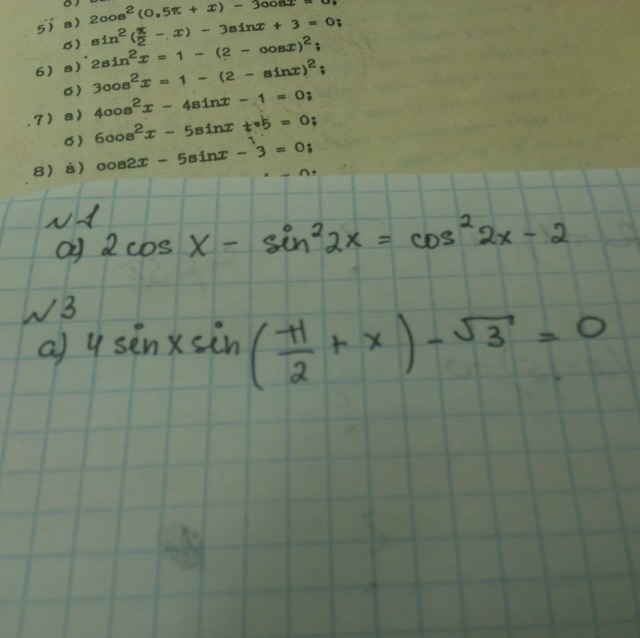 5) а) 2cos²(0.5π + x) - 3cosx = 0;
б) sin²(π/2 - x) - 3sinx + 3 = 0;
6) а) 2sin²x = 1 - (2 - cosx)²;
б) 3cos²x = 1 - (2 - sinx)²;
7) а) 4cos²x - 4sinx - 1 = 0;
б) 6cos²x - 5sinx + 5 = 0;
8) а) cos2x - 5sinx - 3 = 0;
N1
а) 2 cos x - sin²2x = cos²2x - 2
N3
а) 4 sin x sin(π/2 + x) - √3 = 0